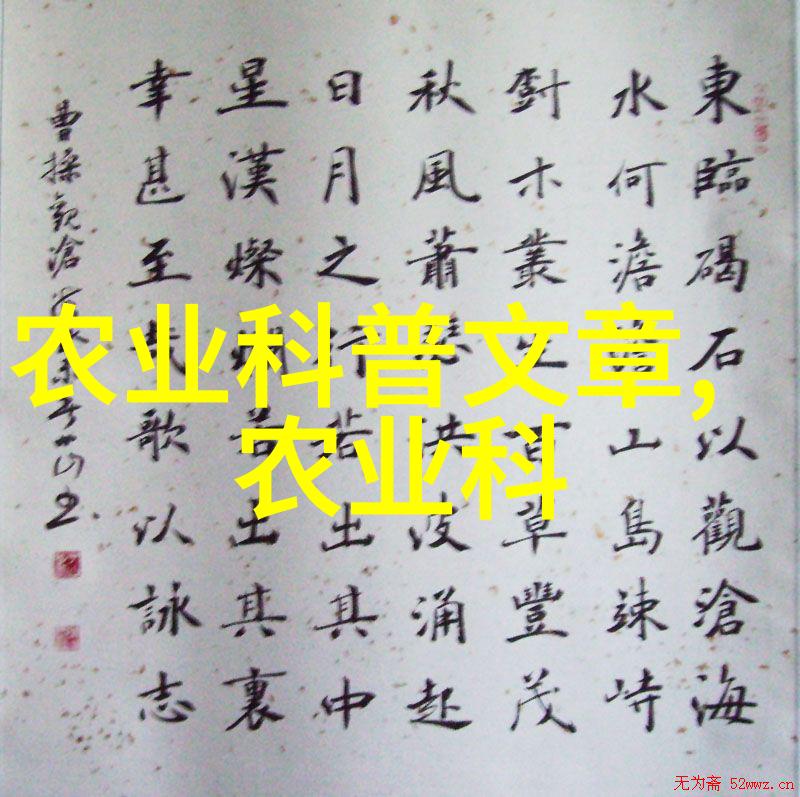 東臨碣石以觀滄海
水何澹澹山島竦峙
木叢生百草豐茂
秋風蕭瑟洪波涌起
日月之行若出其中
星漢燦爛若出其裏
幸甚至哉歌以詠志
曹操觀滄
农业科普文章,
农业科
无为斋 52wwz.cn